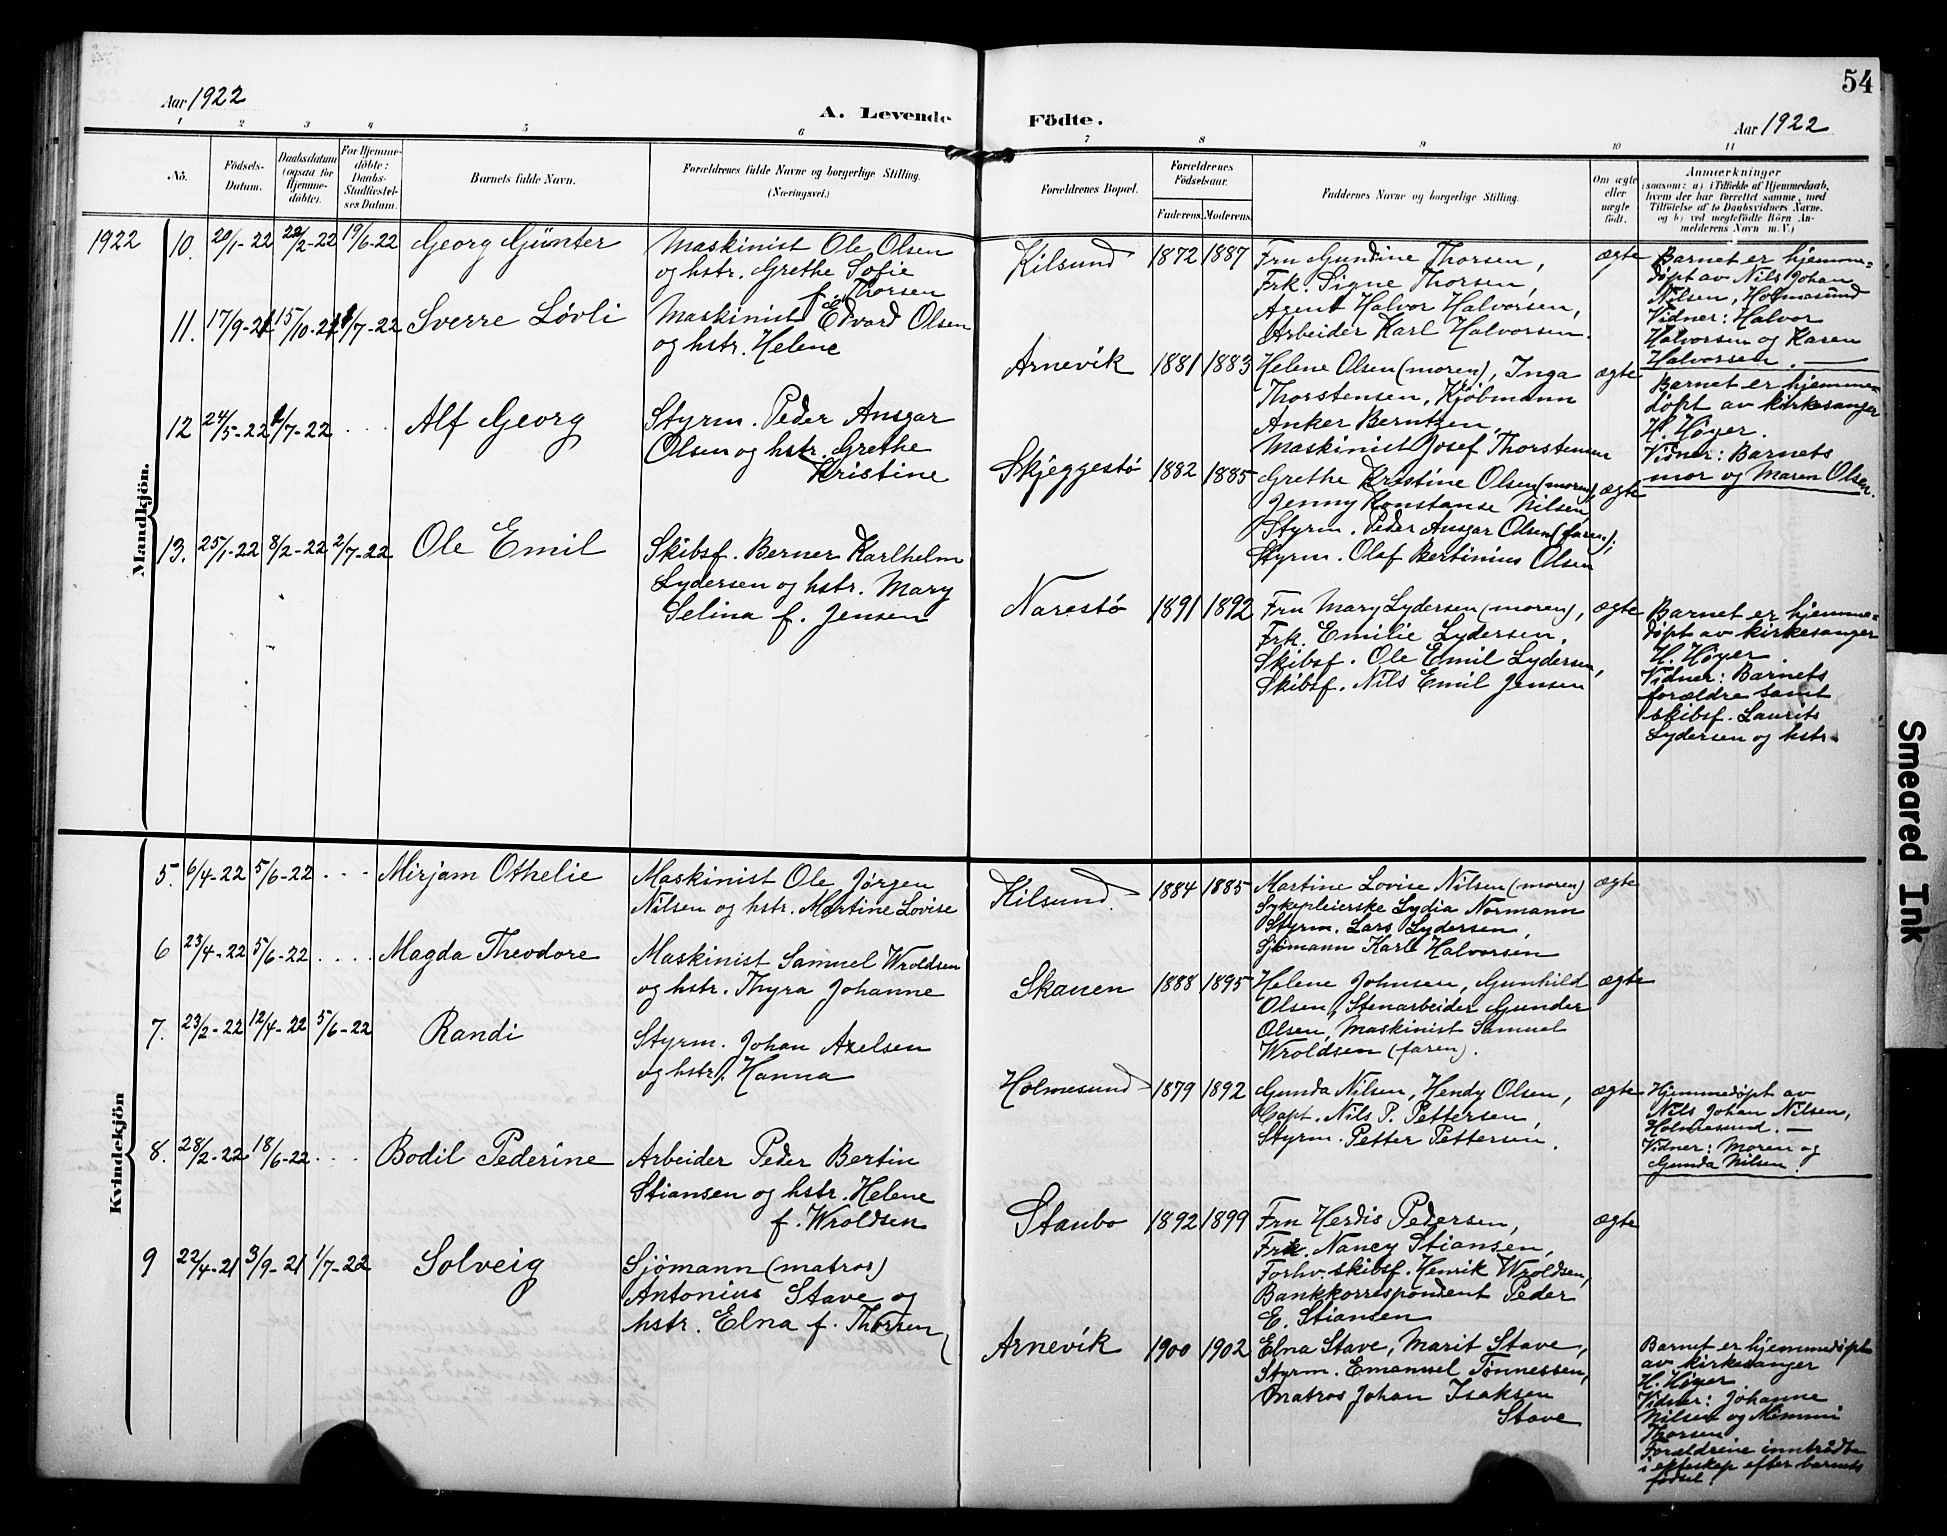 54
Aar 1922
A. Levende Födte.
Aar 1922
1 2 3 4 5 6 7 8 9 10 11
No.
Födsels-
Datum.
Daabsdatum
(ogsaa for
Hjemme-
döbte).
For Hjemme-
döbte:
Daabs-
Stadfæstel-
ses Datum.
Barnets fulde Navn.
Forældrenes fulde Navne og borgerlige Stilling.
(Næringsvei.)
Forældrenes Bopæl.
Forældrenes
Födselsaar.
Faderens. Moderens.
Faddernes Navne og borgerlige Stilling.
Om ægte
eller
uægte
födt.
Anmærkninger
(saasom: a) i Tilfælde af Hjemmedaab,
hvem der har forrettet samme, med
Tilföielse af to Daabsvidners Navne,
og b) ved uægtefödte Börn An-
melderens Navn m. V.)
Mandkjön.
1922 10. 20/1-22 22/2-22 19/6-22 Georg Günter
Maskinist Ole Olsen
og hstr. Grethe Sofie
f. Thorsen
Kilsund 1872 1887
Fru Gundine Thorsen,
Frk. Signe Thorsen,
Agent Halvor Halvorsen,
Arbeider Karl Halvorsen.
ægte
Barnet er hjemme-
døpt av Nils Johan
Nilsen, Holmesund
Vidner: Halvor
Halvorsen og Karen
Halvorsen.
11. 17/9-21 15/10-21 1/7-22 Sverre Løvli
Maskinist Edvard Olsen
og hstr. Helene
Arnevik 1881 1883
Helene Olsen (moren), Inga
Thorstensen, Kjøbmann
Anker Berntzen,
Maskinist Josef Thorstensen
ægte
Barnet er hjemme-
døpt av kirkesanger
H. Høyer.
Vidner: Barnets
mor og Maren Olsen.
12 24/5-22 2/7-22 . . . Alf Georg
Styrm. Peder Ansgar
Olsen og hstr. Grethe
Kristine
Skjeggestø 1882 1885
Grethe Kristine Olsen (moren),
Jenny Konstanse Nilsen
Styrm. Peder Ansgar Olsen (faren);
Styrm. Olaf Bertinius Olsen
ægte
13. 25/1-22 8/2-22 2/7-22 Ole Emil
Skibsf. Berner Karlhelm
Lydersen og hstr. Mary
Selina f. Jensen
Narestø 1891 1892
Fru Mary Lydersen (moren),
Frk. Emilie Lydersen,
Skibsf. Ole Emil Lydersen,
Skibsf. Nils Emil Jensen
ægte
Barnet er hjemme-
døpt av kirkesanger
H. Høyer
Vidner: Barnets
forældre samt
skibsf. Laurits
Lydersen og hstr.
Kvindekjön
5. 6/4-22 5/6-22 . . . Mirjam Othelie
Maskinist Ole Jørgen
Nilsen og hstr. Martine Lovise
Kilsund. 1884 1885
Martine Lovise Nilsen (moren)
Sykepleierske Lydia Normann
Styrm. Lars Lydersen,
Sjømann Karl Halvorsen
ægte
6 23/4-22 5/6-22 . . . . Magda Theodore
Maskinist Samuel Wroldsen
og hstr. Thyra Johanne
Skauen 1888 1895
Helene Johnsen, Gunhild
Olsen, Stenarbeider Gunder
Olsen, Maskinist Samuel
Wroldsen (faren).
ægte
7. 23/2-22 12/4-22 5/6-22 Randi
Styrm. Johan Axelsen
og hstr. Hanna
Holmesund 1879 1892
Gunda Nilsen, Hendy Olsen,
Capt. Nils P. Pettersen,
Styrm. Petter Pettersen.
ægte
Hjemmedøpt av
Nils Johan Nilsen,
Holmesund. —
Vidner: Moren og
Gunda Nilsen.
8. 28/2-22 18/6-22 . . . Bodil Pederine
Arbeider Peder Bertin
Stiansen og hstr. Helene
f. Wroldsen
Staubo 1892 1899
Fru Herdis Pedersen,
Frk. Nancy Stiansen,
Forhv. skibsf. Henrik Wroldsen,
Bankkorrespondent Peder
E. Stiansen
ægte
9 22/4-21 3/9-21 1/7-22 Solveig
Sjømann (matros)
Antonius Stave og
hstr. Elna f. Thorsen
Arnevik 1900 1902
Elna Stave, Marit Stave,
Styrm. Emanuel Tønnessen,
Matros Johan Isaksen
Stave
Barnet er hjemmedøpt
av kirkesanger
H. Høyer
Vidner: Johanne
Nilsen og Mimmi
Thorsen
Forældrene inntrådte
i ekteskap efter barnets
fødsel.
Smeared Ink